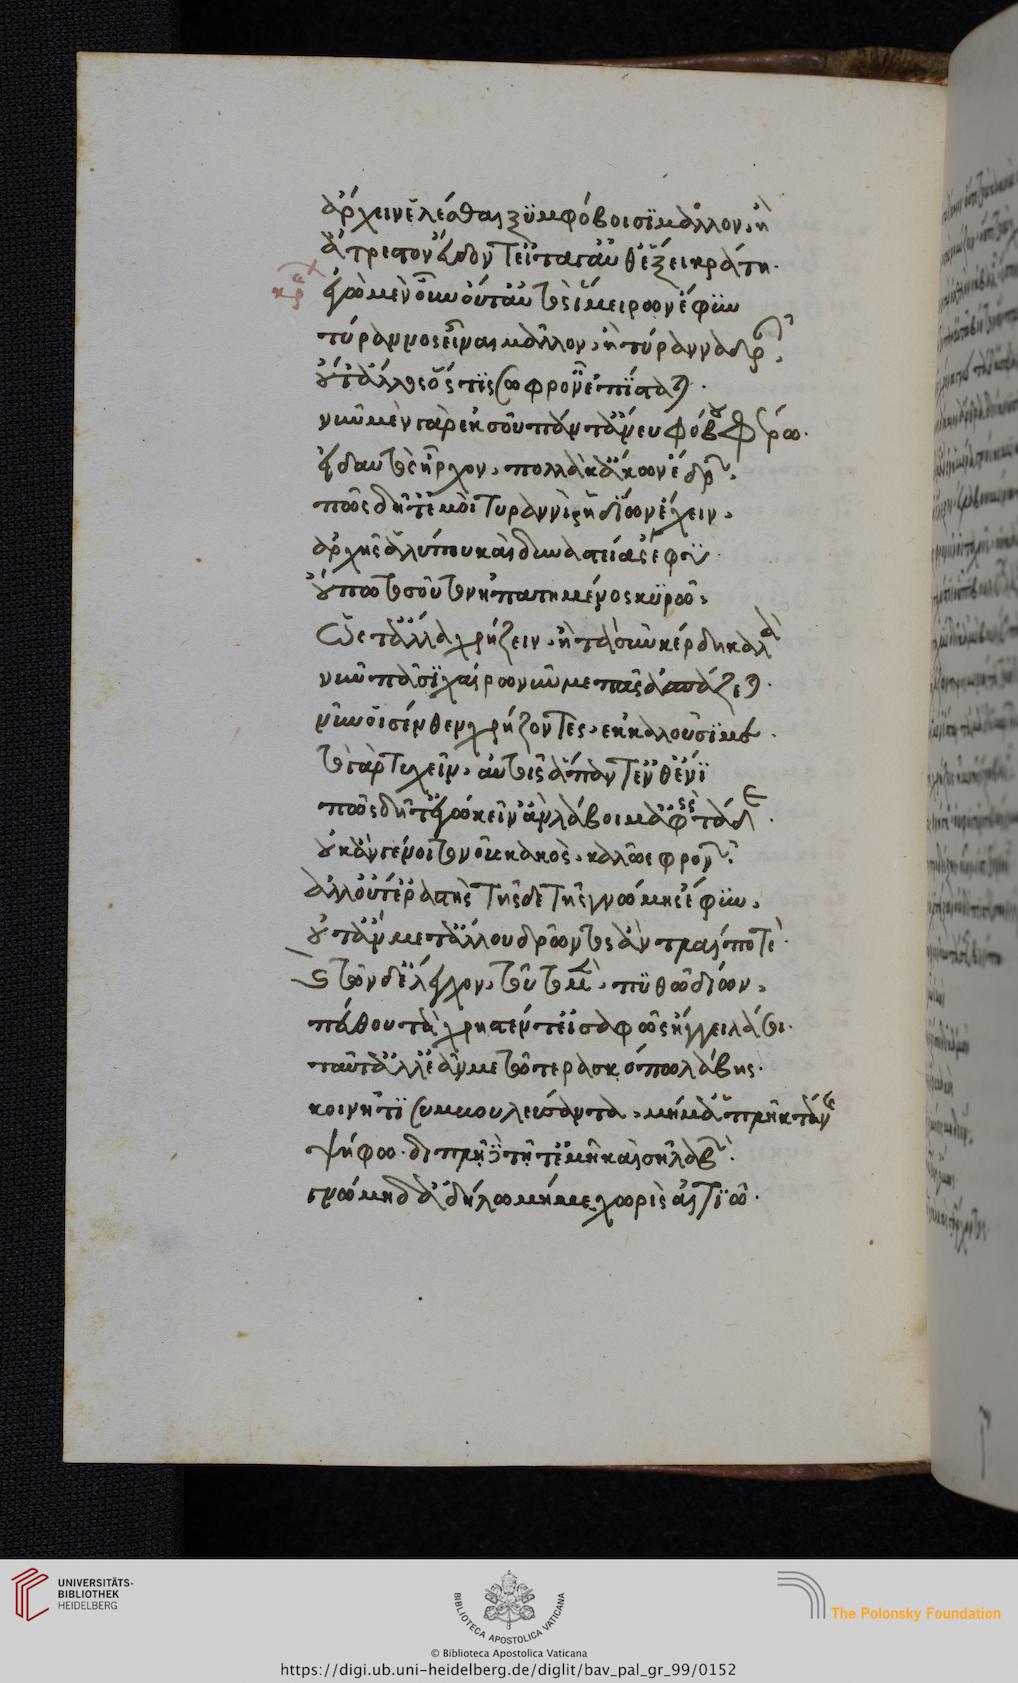 ἄρχειν ἑλέσθαι ξὺν φόβοισι μᾶλλον ἢ
ἄτρεστον εὕδοντ' εἰ τά γ' αὔθ' ἕξει κράτη.
ἐγὼ μὲν οὖν οὔτ' αὐτὸς ἱμείρων ἔφυν
τύραννος εἶναι μᾶλλον ἢ τύραννα δρᾶν,
οὔτ' ἄλλος ὅστις σωφρονεῖν ἐπίσταται.
νῦν μὲν γὰρ ἐκ σοῦ πάντ' ἄνευ φόβου φέρω.
εἰ δ' αὐτὸς ἦρχον, πολλὰ κἂν ἄκων ἔδρων.
πῶς δῆτ' ἐμοὶ τυραννὶς ἡδίων ἔχειν,
ἀρχῆς ἀλύπου καὶ δυναστείας ἔφυ.
οὔπω τοσοῦτον ἠπατημένος κυρῶ,
ὥστ' ἄλλα χρῄζειν ἢ τὰ σὺν κέρδει καλά
νῦν πᾶσι χαίρω νῦν με πᾶς ἀσπάζεται.
νῦν οἱ σέθεν χρῄζοντες, ἐκκαλοῦσί με.
τὸ γὰρ τυχεῖν αὐτοῖς ἅπαντ' ἐνθένι
πῶς δῆτ' ἐγὼ κεῖν' ἂν λάβοιμ' ἀφεὶς τάδε.
οὐκ ἂν γένοιτο νοῦς κακὸς καλῶς φρονῶν.
ἀλλ' οὔτ' ἐραστὴς τῆσδε τῆς γνώμης ἔφυν,
οὔτ' ἂν μετ' ἄλλου δρῶντος ἂν τλαίην ποτέ.
καὶ τῶνδ' ἔλεγχον τοῦτο μὲν πυθώδ' ἰὼν,
πύθου τὰ χρησθέντ' εἰ σαφῶς ἤγγειλά σοι.
ταῦτ' ἄλλ' ἐάν με τῷ τερασκόπῳ λάβῃς
κοινῇ τι συμβουλεύσαντα, μή μ' ἁπλῇ κτάνῃς
ψήφῳ. διπλῇ δὲ τῇ τ' ἐμῇ καὶ σῇ λαβών.
γνώμῃ δ' ἀδήλῳ μή με χωρὶς αἰτιῶ.
UNIVERSITÄTS-
BIBLIOTHEK
HEIDELBERG
BIBLIOTECA APOSTOLICA VATICANA
The Polonsky Foundation
© Biblioteca Apostolica Vaticana
https://digi.ub.uni-heidelberg.de/diglit/bav_pal_gr_99/0152